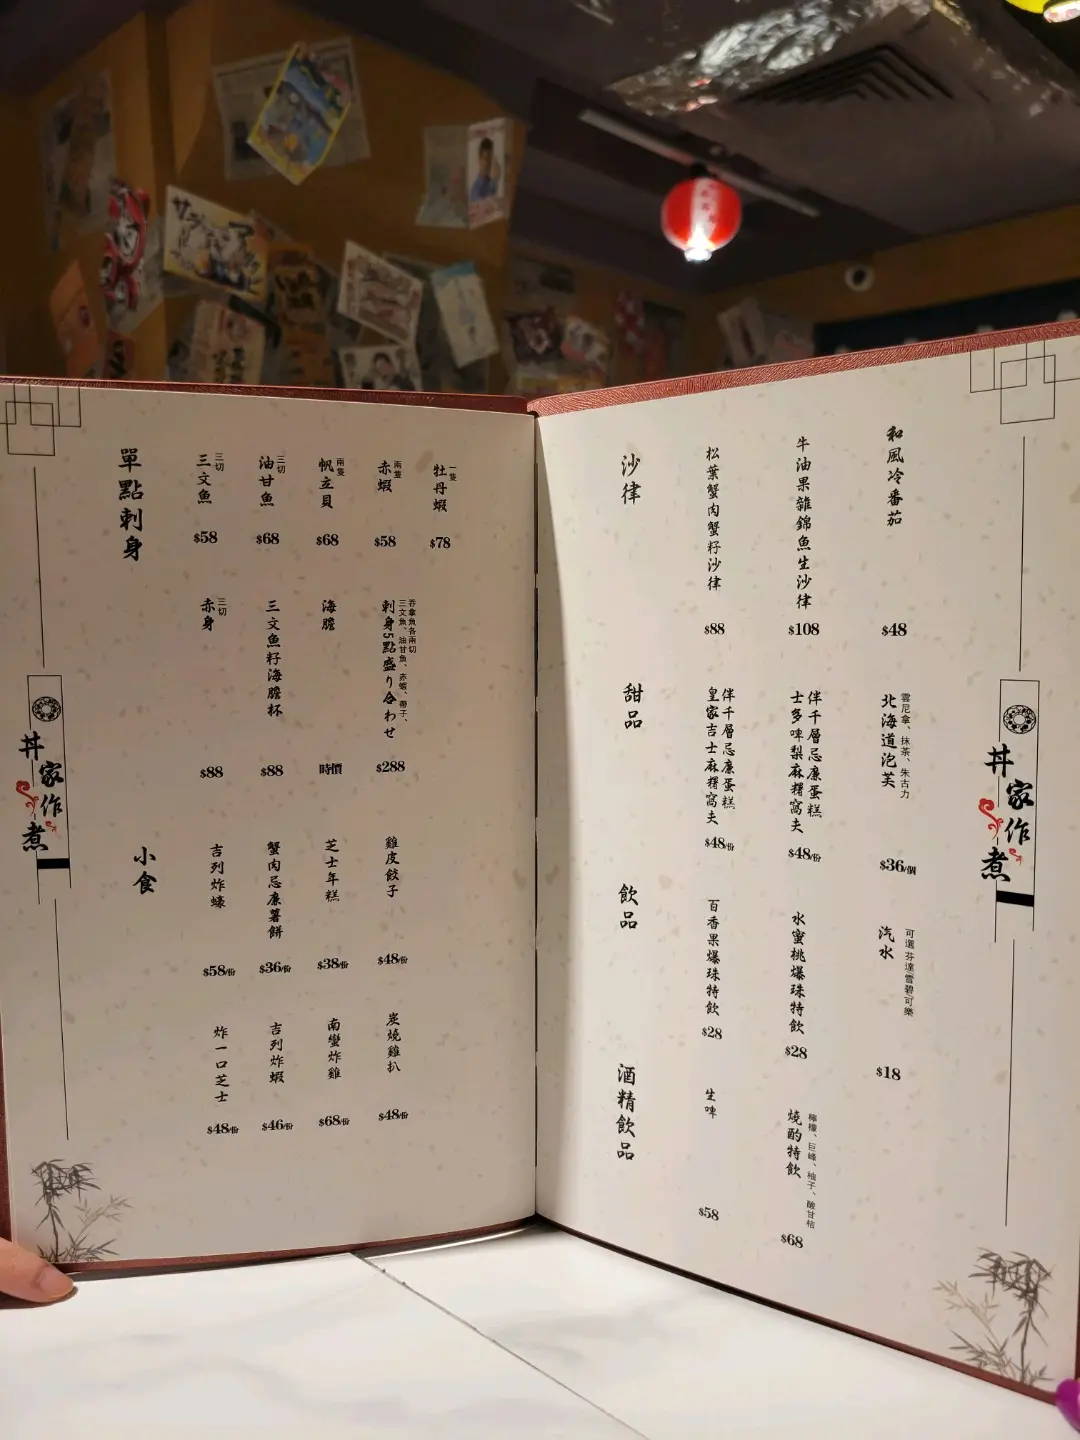 單點刺身
三文魚
三切
$58
油甘魚
三切
$68
帆立貝
兩隻
$68
赤蝦
兩隻
$58
牡丹蝦
一隻
$78
赤身
三切
$88
三文魚籽海膽杯
$88
海膽
時價
刺身5點盛り合わせ
三文魚、油甘魚、赤蝦、帶子、
吞拿魚各兩切
$288
小食
吉列炸蠔
$58/份
蟹肉忌廉薯餅
$36/份
芝士年糕
$38/份
雞皮餃子
$48/份
炸一口芝士
$48/份
吉列炸蝦
$46/份
南蠻炸雞
$68/份
炭燒雞扒
$48/份
丼家作煮
沙律
松葉蟹肉蟹籽沙律
$88
牛油果雜錦魚生沙律
$108
和風冷番茄
$48
甜品
皇家吉士麻糬窩夫
伴千層忌廉蛋糕
$48/份
士多啤梨麻糬窩夫
伴千層忌廉蛋糕
$48/份
北海道泡芙
雲尼拿、抹茶、朱古力
$36/個
飲品
百香果爆珠特飲
$28
水蜜桃爆珠特飲
$28
汽水
可選芬達雪碧可樂
$18
酒精飲品
生啤
$58
燒酌特飲
檸檬、巨峰、柚子、酸甘桔
$68
丼家作煮